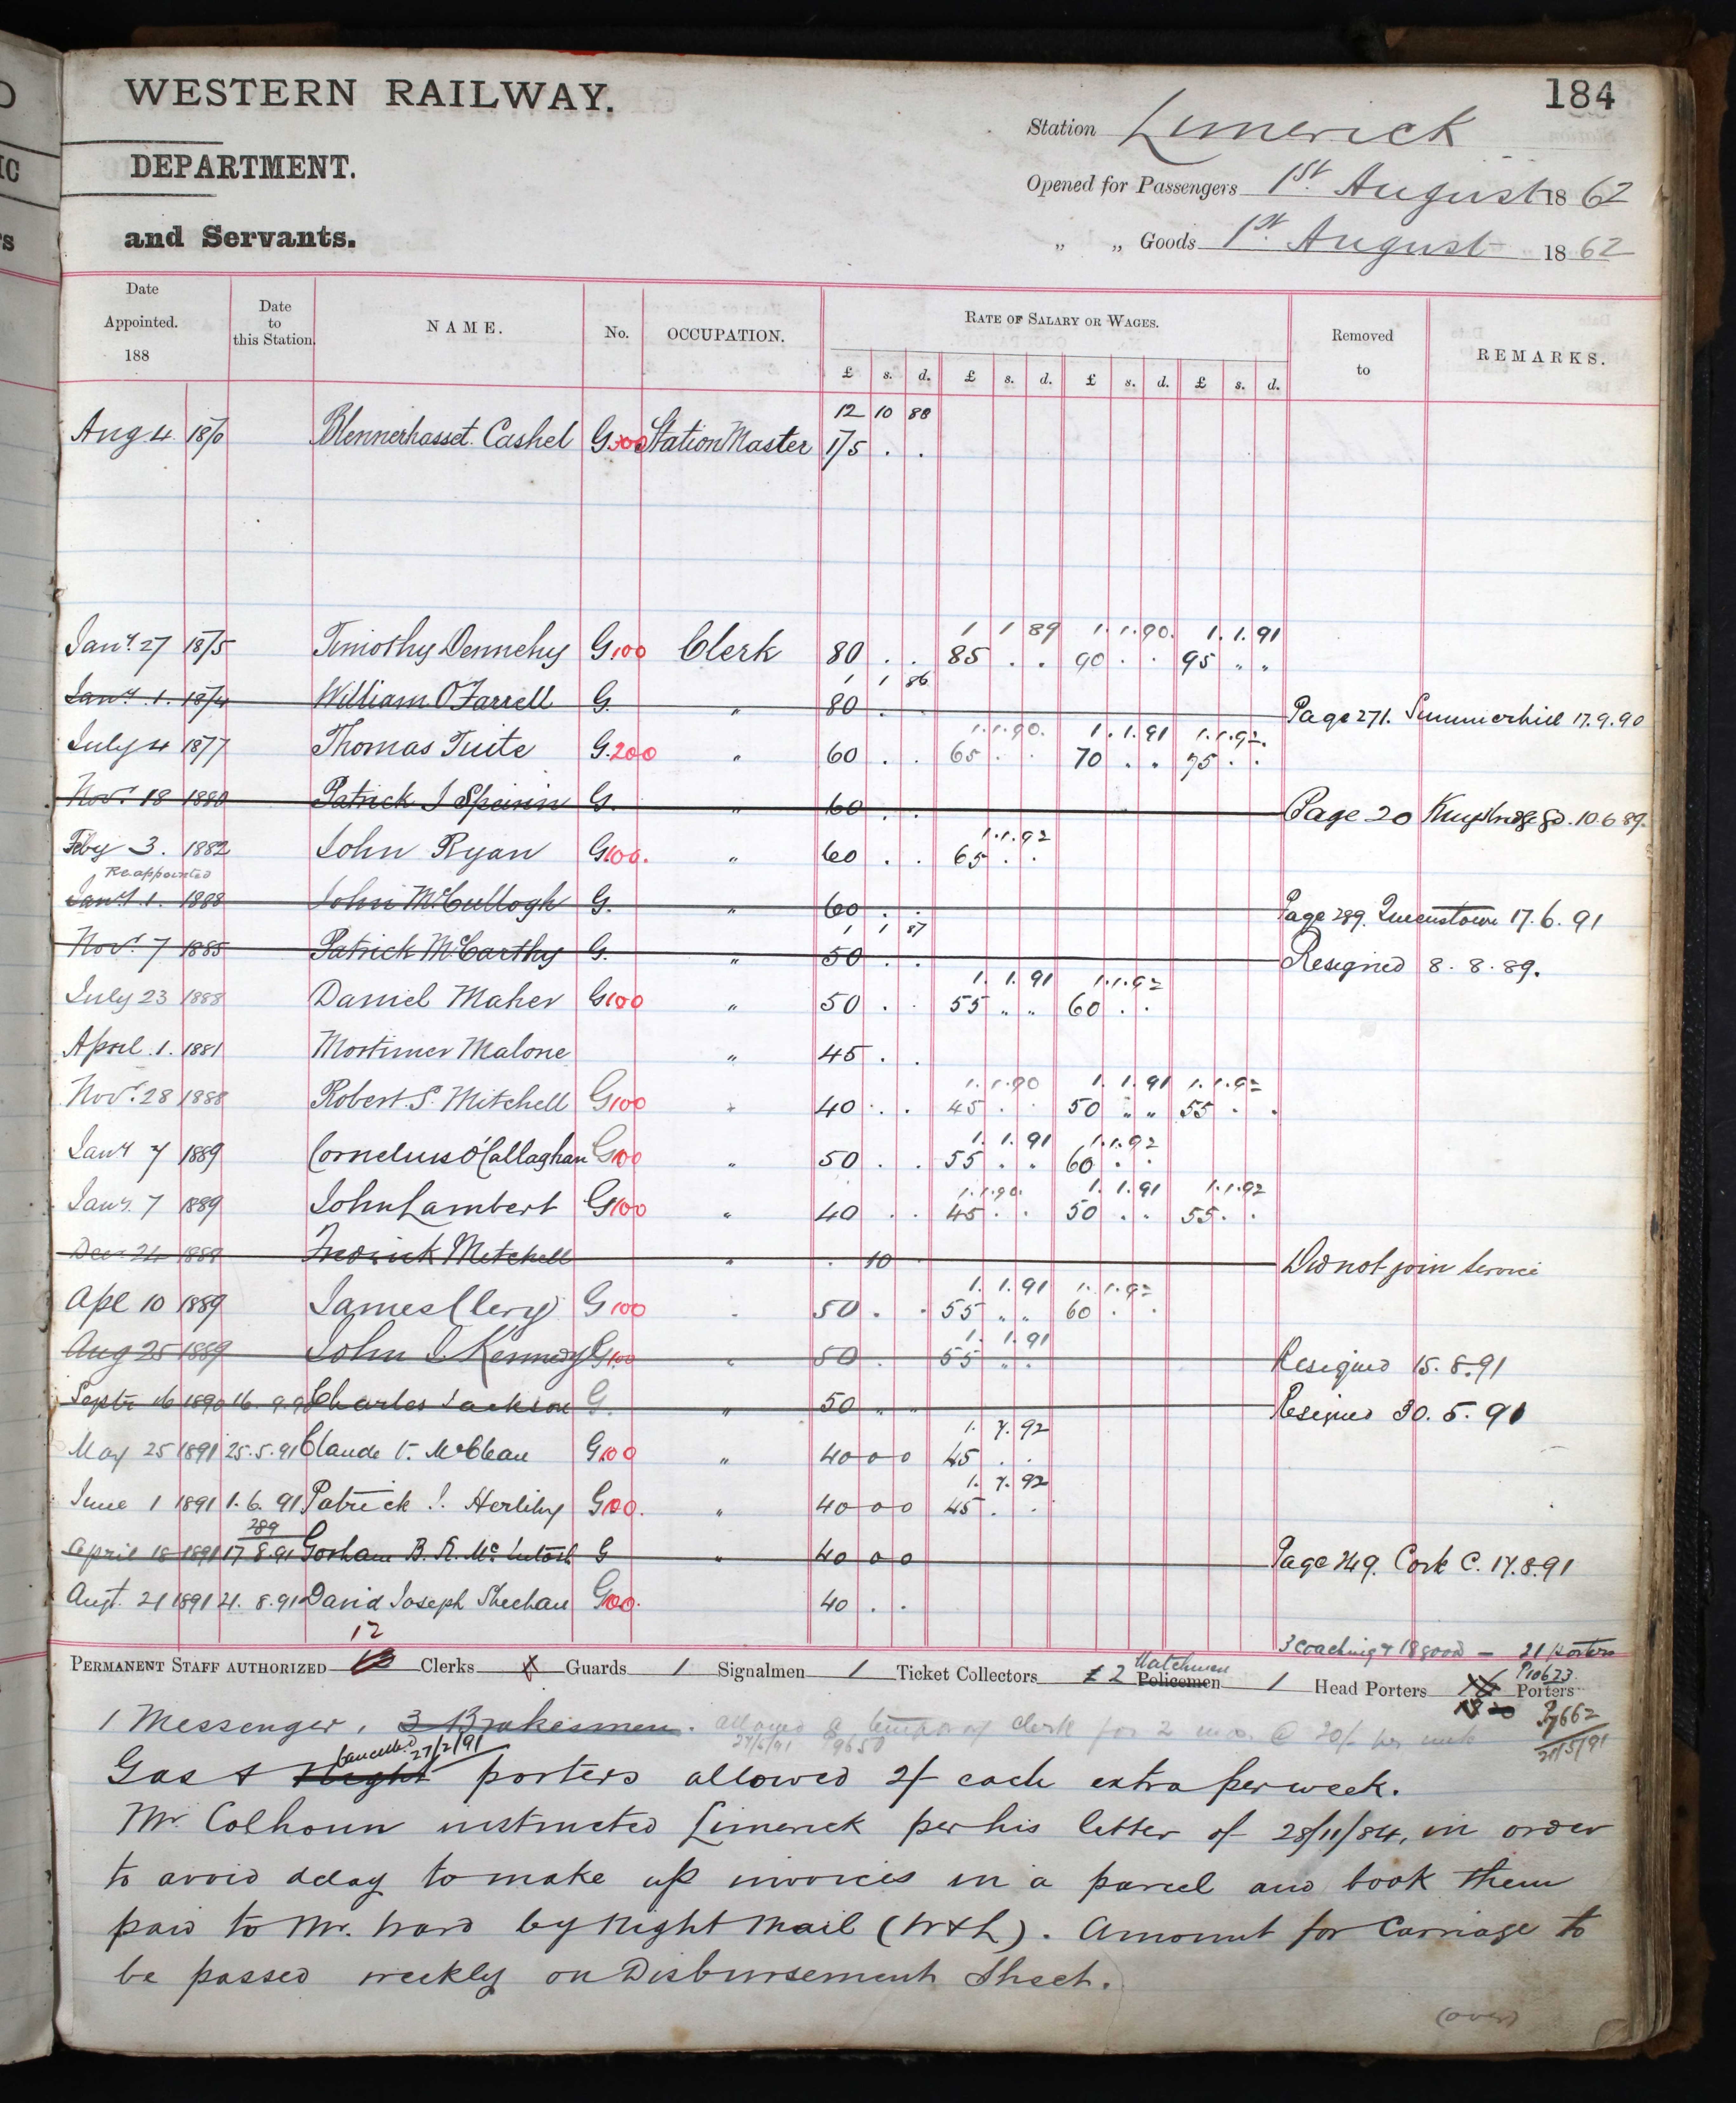 WESTERN RAILWAY.
184
DEPARTMENT.
and Servants.
Station Limerick
Opened for Passengers 1st. August 1862
„ „ Goods 1st. August 1862
Date Appointed. 188
Date to this Station
NAME.
No.
OCCUPATION.
RATE OF SALARY OR WAGES.
Removed to
REMARKS.
£ s. d. £ s. d. £ s. d. £ s. d.
12 10 88
Aug 4 1870 Blennerhasset Cashel G.300 Station Master 175 . .
1 1 89 1.1.90. 1.1.91
Jany. 27 1875 Timothy Dennehy G100 Clerk 80 . . 85 . . 90 . . 95 „ „
1 1 86
Jany. 1. 1874 William O'Farrell G. „ 80 . Page 271. Summerhill 17.9.90
1.1.90. 1.1.91 1.1.92.
July 4 1877 Thomas Tuite G.200 „ 60 . . 65 . . 70 . . 75 . .
Novr. 18 1880 Patrick J Speirin G. „ 60 . . Page 20 Kingsbridge Gd. 10.6.89.
1.1.92
Feby 3. 1882 John Ryan G100. „ 60 . . 65 . .
Re-appointed
Jany. 1. 1888 John McCullogh G. „ 60 . . Page 289. Queenstown 17.6.91
1 1 87
Novr. 7 1885 Patrick McCarthy G. „ 50 . . Resigned 8.8.89.
1. 1.91 1.1.92
July 23 1888 Daniel Maher G100 „ 50 . . 55 „ „ 60 . .
April. 1. 1881 Mortimer Malone „ 45 . .
1.1.90 1.1.91 1.1.92
Novr. 28 1888 Robert S. Mitchell G100 „ 40 . . 45 . . 50 „ „ 55 . .
1. 1.91 1.1.92
Jany 7 1889 Cornelius O'Callaghan G100 „ 50 . . 55 . . 60 . .
1.1.90. 1. 1.91 1.1.92
Jany. 7 1889 John Lambert G100 „ 40 . . 45 . . 50 . . 55 . .
Dec 24 1888 Fredrick Mitchell „ . 10 Did not join Service
1. 1.91 1.1.92
Apl 10 1889 James Clery G100 „ 50 . . 55 „ „ 60 . .
1. 1.91
Aug 25 1889 John J. Kennedy G100 „ 50 . 55 „ . Resigned 15.8.91
Septr 16 1890 16.9.90 Charles Jackson G. „ 50 „ „ Resigned 30.5.91
1. 7.92
May 25 1891 25.5.91 Claude McClean G100 „ 40 0 0 45 . .
1. 7.92
June 1 1891 1.6.91 Patrick J. Herlihy G100. „ 40 0 0 45 . .
289
April 18 1891 17.8.91 Gorham B. A. McIntosh G „ 40 0 0 Page 249. Cork C. 17.8.91
Augt. 21 1891 21.8.91 David Joseph Sheehan G100. 40 . .
3 Coaching & 18 goods — 21 porters
12
PERMANENT STAFF AUTHORIZED 13 Clerks Guards 1 Signalmen 1 Ticket Collectors 2 Policemen Watchmen 1 Head Porters Porters
P10623
20 7662
1 Messenger, 3 Brakesmen. allowed a tempory clerk for 2 mos. @ 20/- per week 21/5/91
27/5/91 9650
Cancelled 27/2/91
Gas & Night porters allowed 2/- each extra per week.
Mr. Colhoun instructed Limerick per his letter of 28/11/84, in order
to avoid delay to make up invoices in a parcel and book them
paid to Mr. Ward by Night Mail (W&L). Amount for Carriage to
be passed weekly on Disbursement Sheet.
(over)